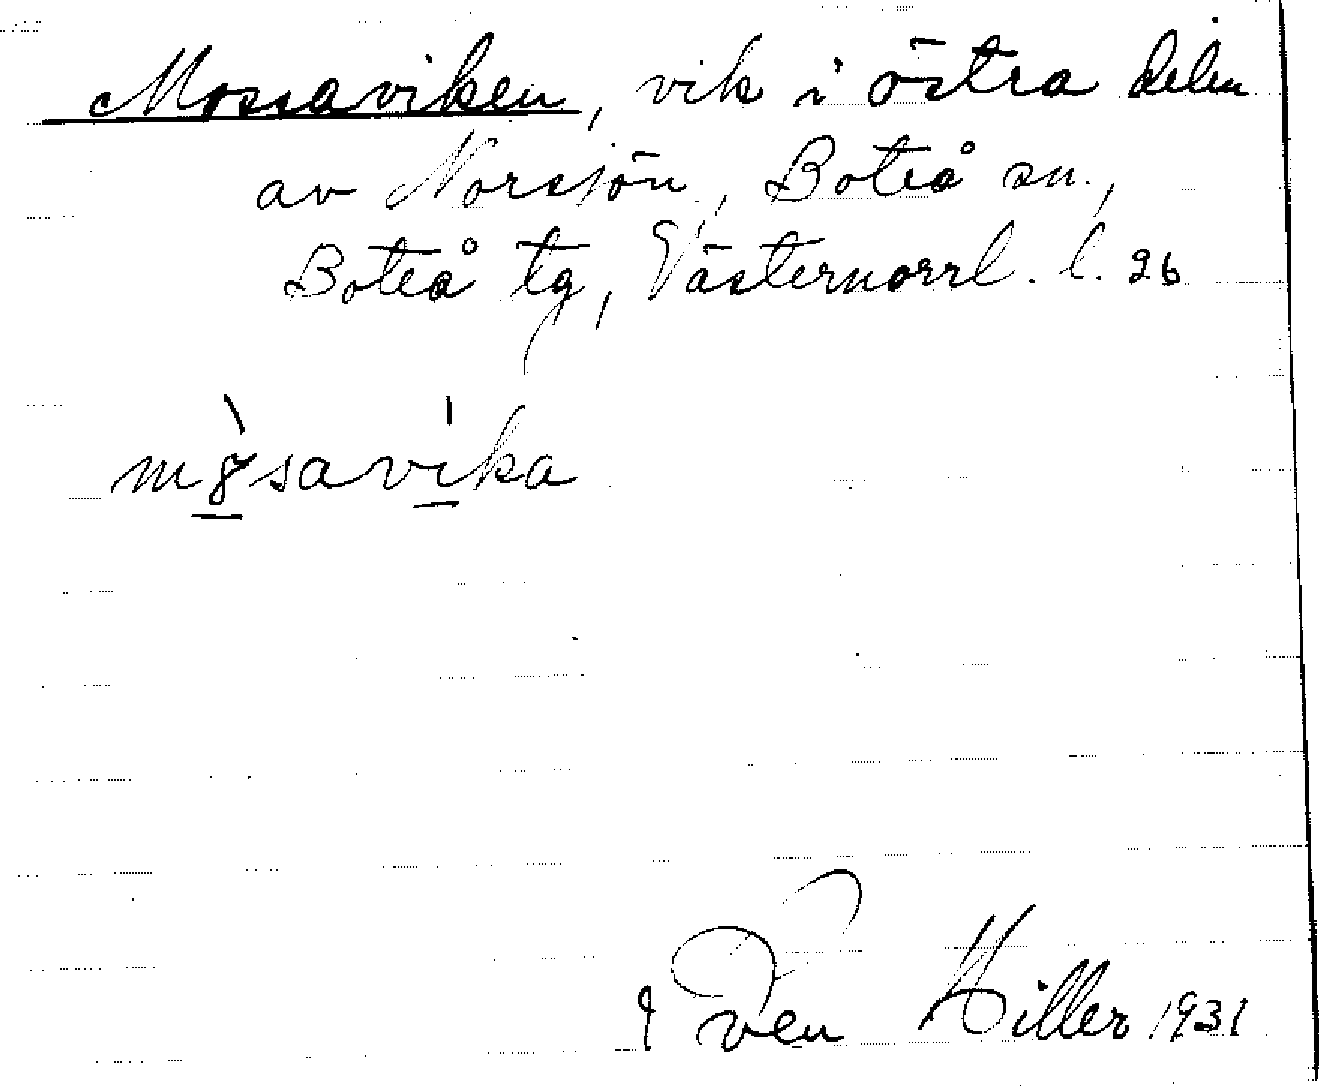 Mossaviken, vik i östra delen
av Norsjön, Boteå sn.,
Boteå tg, Västernorrl. l. 26
mòsavika
Sven Hiller 1931